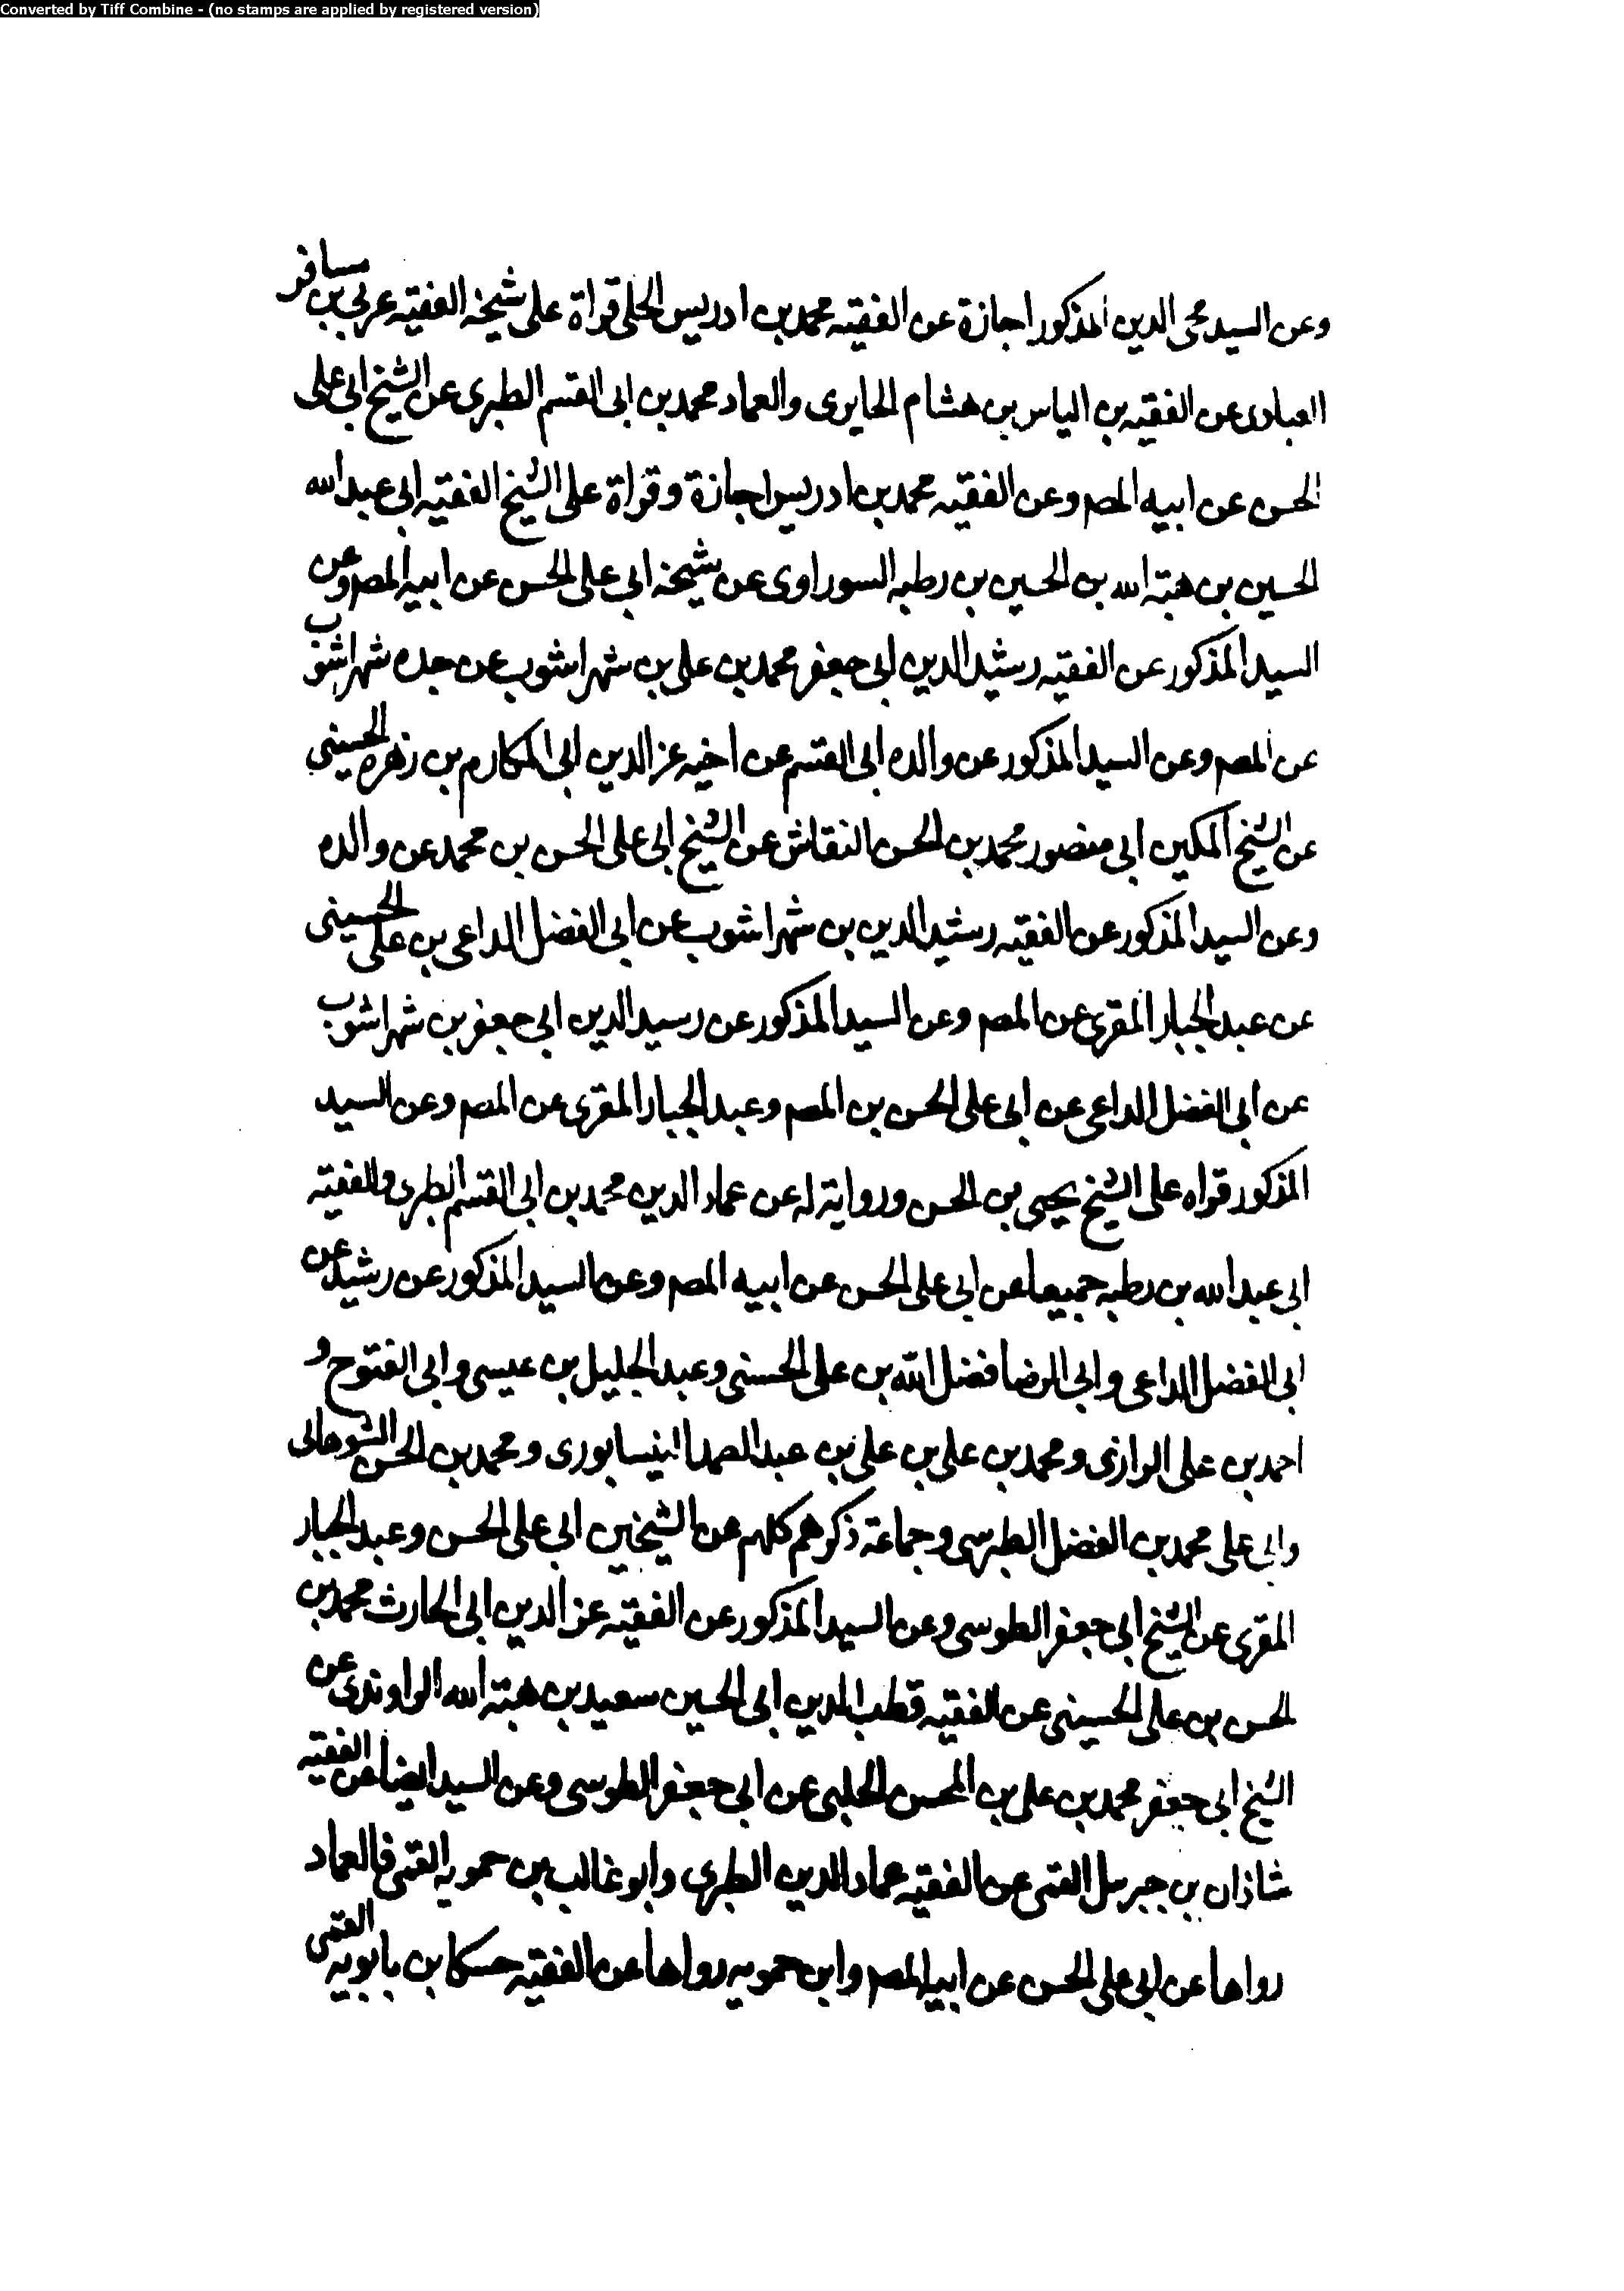 Converted by Tiff Combine - (no stamps are applied by registered version)
وعن السيد محى الدين المذكور اجازة عن الفقيه محمد بن ادريس الحلى قراة على شيخه الفقيه عربى بن مسافر
العبادى عن الفقيه بن الياس بن هشام الحايرى والعماد محمد بن ابى القسم الطبرى عن الشيخ ابى على
الحسن عن ابيه المصر وعن الفقيه محمد بن ادريس اجازة وقراة على الشيخ الفقيه ابى عبد الله
الحسين بن هبة الله بن الحسين بن رطبه السوراوى عن شيخه ابى على الحسن عن ابيه المصر وعن
السيد المذكور عن الفقيه رشيد الدين ابى جعفر محمد بن على بن شهراشوب عن جده شهراشوب
عن المصر وعن السيد المذكور عن والده ابى القسم عن اخيه عز الدين ابى المكارم بن زهره الحسينى
عن الشيخ المكين ابى منصور محمد بن الحسن النقاش عن الشيخ ابى على الحسن بن محمد عن والده
وعن السيد المذكور عن الفقيه رشيد الدين بن شهراشوب عن ابى الفضل الداعى بن على الحسينى
عن عبد الجبار المقرى عن المصر وعن السيد المذكور عن رسيد الدين ابى جعفر بن شهراشوب
عن ابى الفضل الداعى عن ابى على الحسن بن المصر وعبد الجبار المقرى عن المصر وعن السيد
المذكور قراه على الشيخ يحيى بن الحسن ورواية له عن عماد الدين محمد بن ابى القسم الطبرى والفقيه
ابى عبد الله بن رطبه جميعا عن ابى على الحسن عن ابيه المصر وعن السيد المذكور عن رشيد عن
ابى الفضل الداعى وابى الرضا فضل الله بن على الحسنى وعبد الجليل بن عيسى وابى الفتوح و
احمد بن على الرازى ومحمد بن على بن على بن عبد الصمد النيسابورى ومحمد بن الحسن الشوهانى
وابى على محمد بن الفضل الطبرسى وجماعة ذكرهم كلهم عن الشيخين ابى على الحسن وعبد الجبار
المقرى عن الشيخ ابى جعفر الطوسى وعن السيد المذكور عن الفقيه عز الدين ابى الحارث محمد بن
الحسن بن على الحسينى عن الفقيه قطب الدين ابى الحسين سعيد بن هبة الله الراوندى عن
الشيخ ابى جعفر محمد بن على بن المحسن الحلبى عن ابى جعفر الطوسى وعن السيد ايضا عن الفقيه
شاذان بن جبرىل القمى عن الفقيه عماد الدين الطبرى وابو غالب بن حمويه القمى فالعماد
رواها عن ابى على الحسن عن ابيه المصر وابن حمويه رواها عن الفقيه حسكا بن بابويه القمى